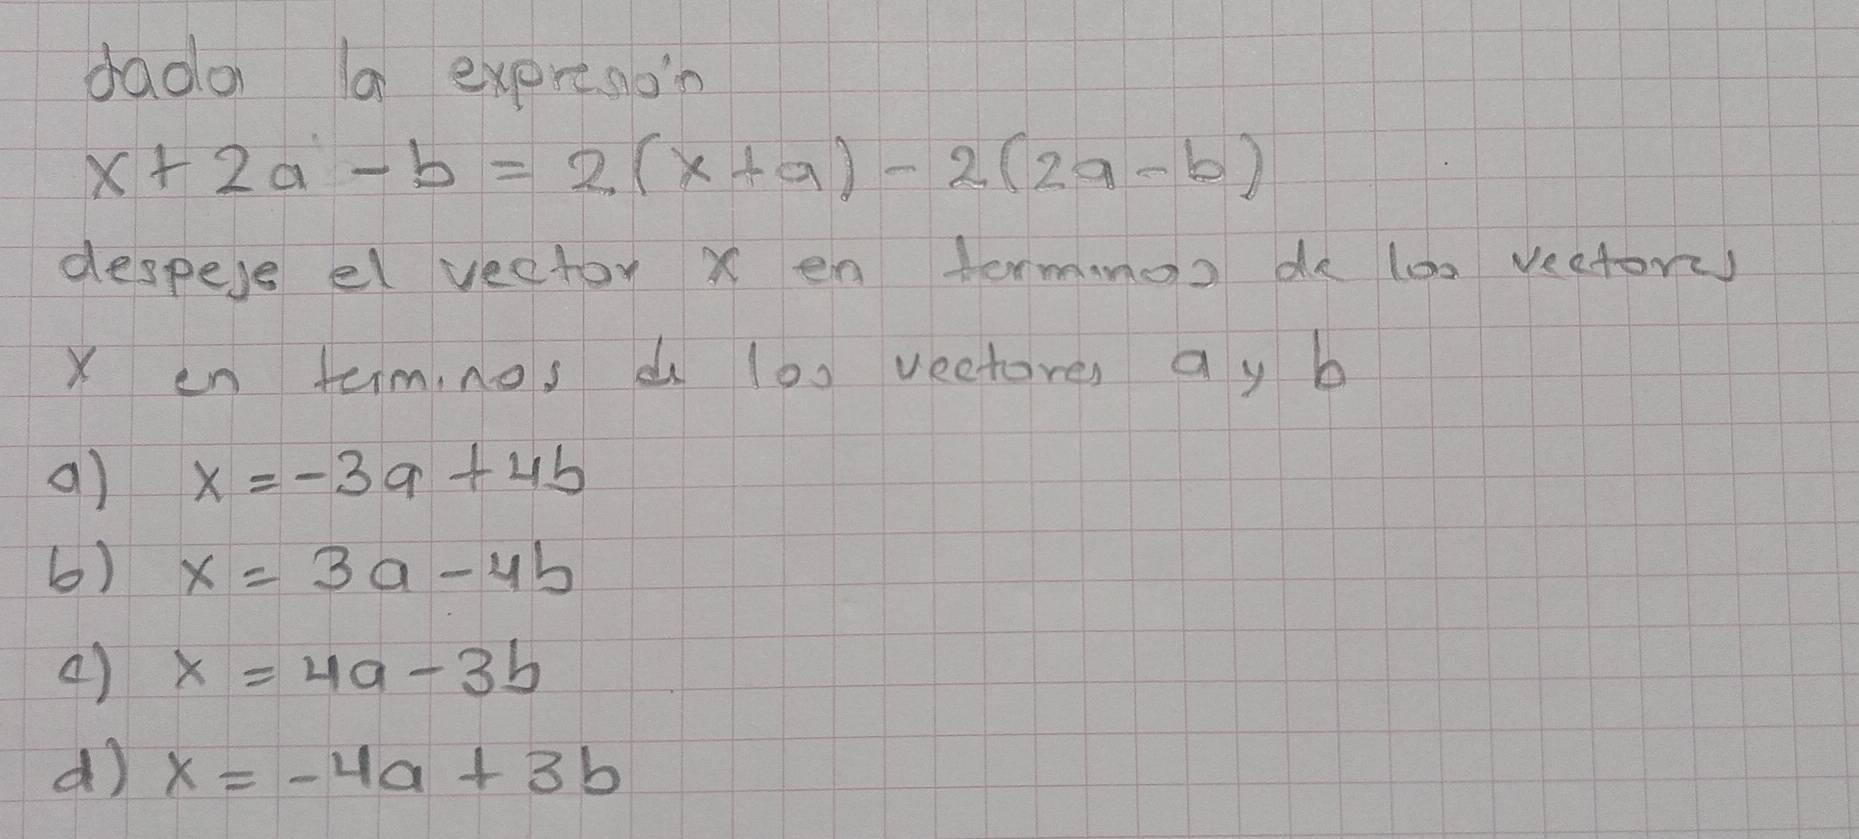 dada la expresión
x + 2a - b = 2(x + a) - 2(2a - b)
despeje el vector x en terminos de los vectores
x en terminos de los vectores a y b
a) x = -3a + 4b
b) x = 3a - 4b
c) x = 4a - 3b
d) x = -4a + 3b